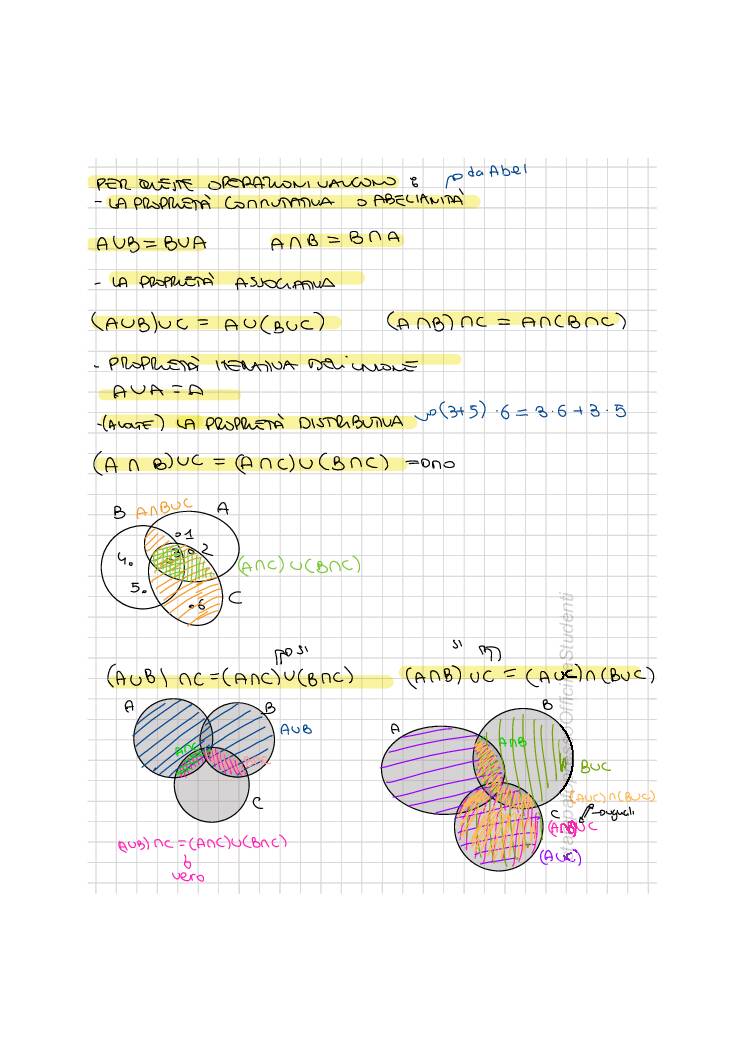 PER QUESTE OPERAZIONI VALGONO
- LA PROPRIETÀ COMMUTATIVA O ABELIANITÀ da Abel
A∪B = B∪A A∩B = B∩A
- LA PROPRIETÀ ASSOCIATIVA
(A∪B)∪C = A∪(B∪C) (A∩B)∩C = A∩(B∩C)
- PROPRIETÀ ITERATIVA DELL'UNIONE
A∪A = A
-(A VOLTE) LA PROPRIETÀ DISTRIBUTIVA (3+5)·6 = 3·6+3·5
(A∩B)∪C = (A∩C)∪(B∩C) no
B A∩B∪C A
.1
3 .2
4.
(A∩C)∪(B∩C)
5.
.6
C
si si
(A∪B)∩C = (A∩C)∪(B∩C) (A∩B)∪C = (A∪C)∩(B∪C)
A B A∪B
A∩C
C
A B
A∩B
B∪C
(A∪C)∩(B∪C)
C uguali
(A∩B)∪C
(A∪C)
(A∪B)∩C = (A∩C)∪(B∩C)
vero